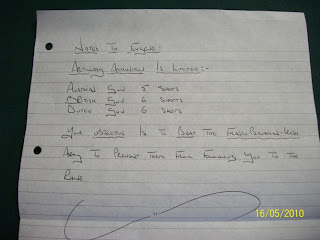 NOTES TO EUGENE:
ARTILLERY AMMUNITION IS LIMITED:-
AUSTRIAN GUN 5 SHOTS
BRITISH GUN 6 SHOTS
DUTCH GUN 6 SHOTS
YOUR OBJECTIVE IS TO BEAT THE FRANCO-BAVARIAN-
ARMY TO PREVENT THEM FROM FOLLOWING YOU TO THE
RHINE
16/05/2010